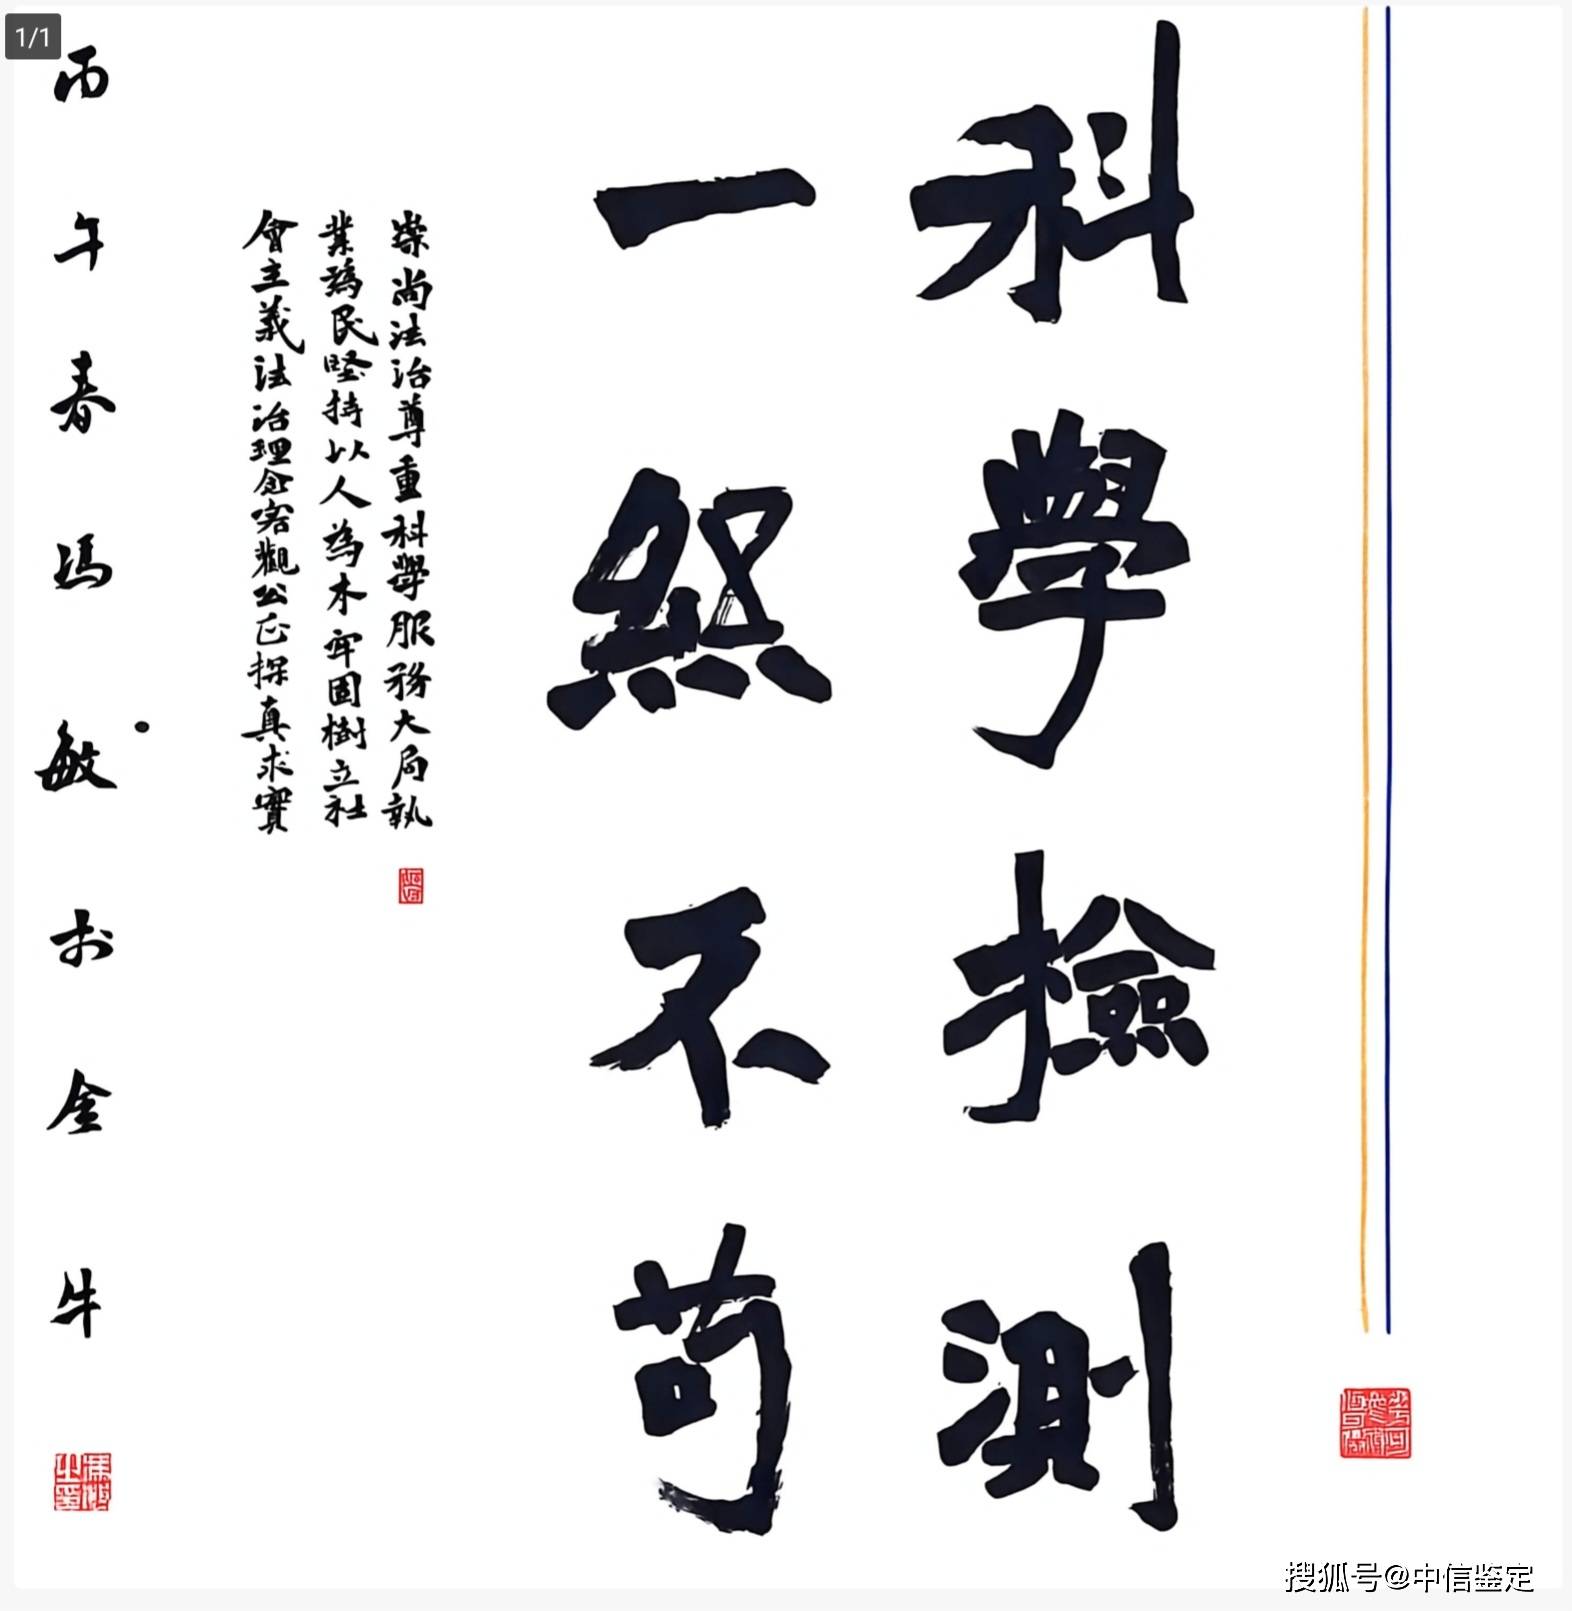 1/1
科學檢測
一絲不苟
崇尚法治尊重科學服務大局執
業為民堅持以人為本牢固樹立社
會主義法治理念客觀公正探真求實
丙午春馮敏於金牛
搜狐号@中信鉴定